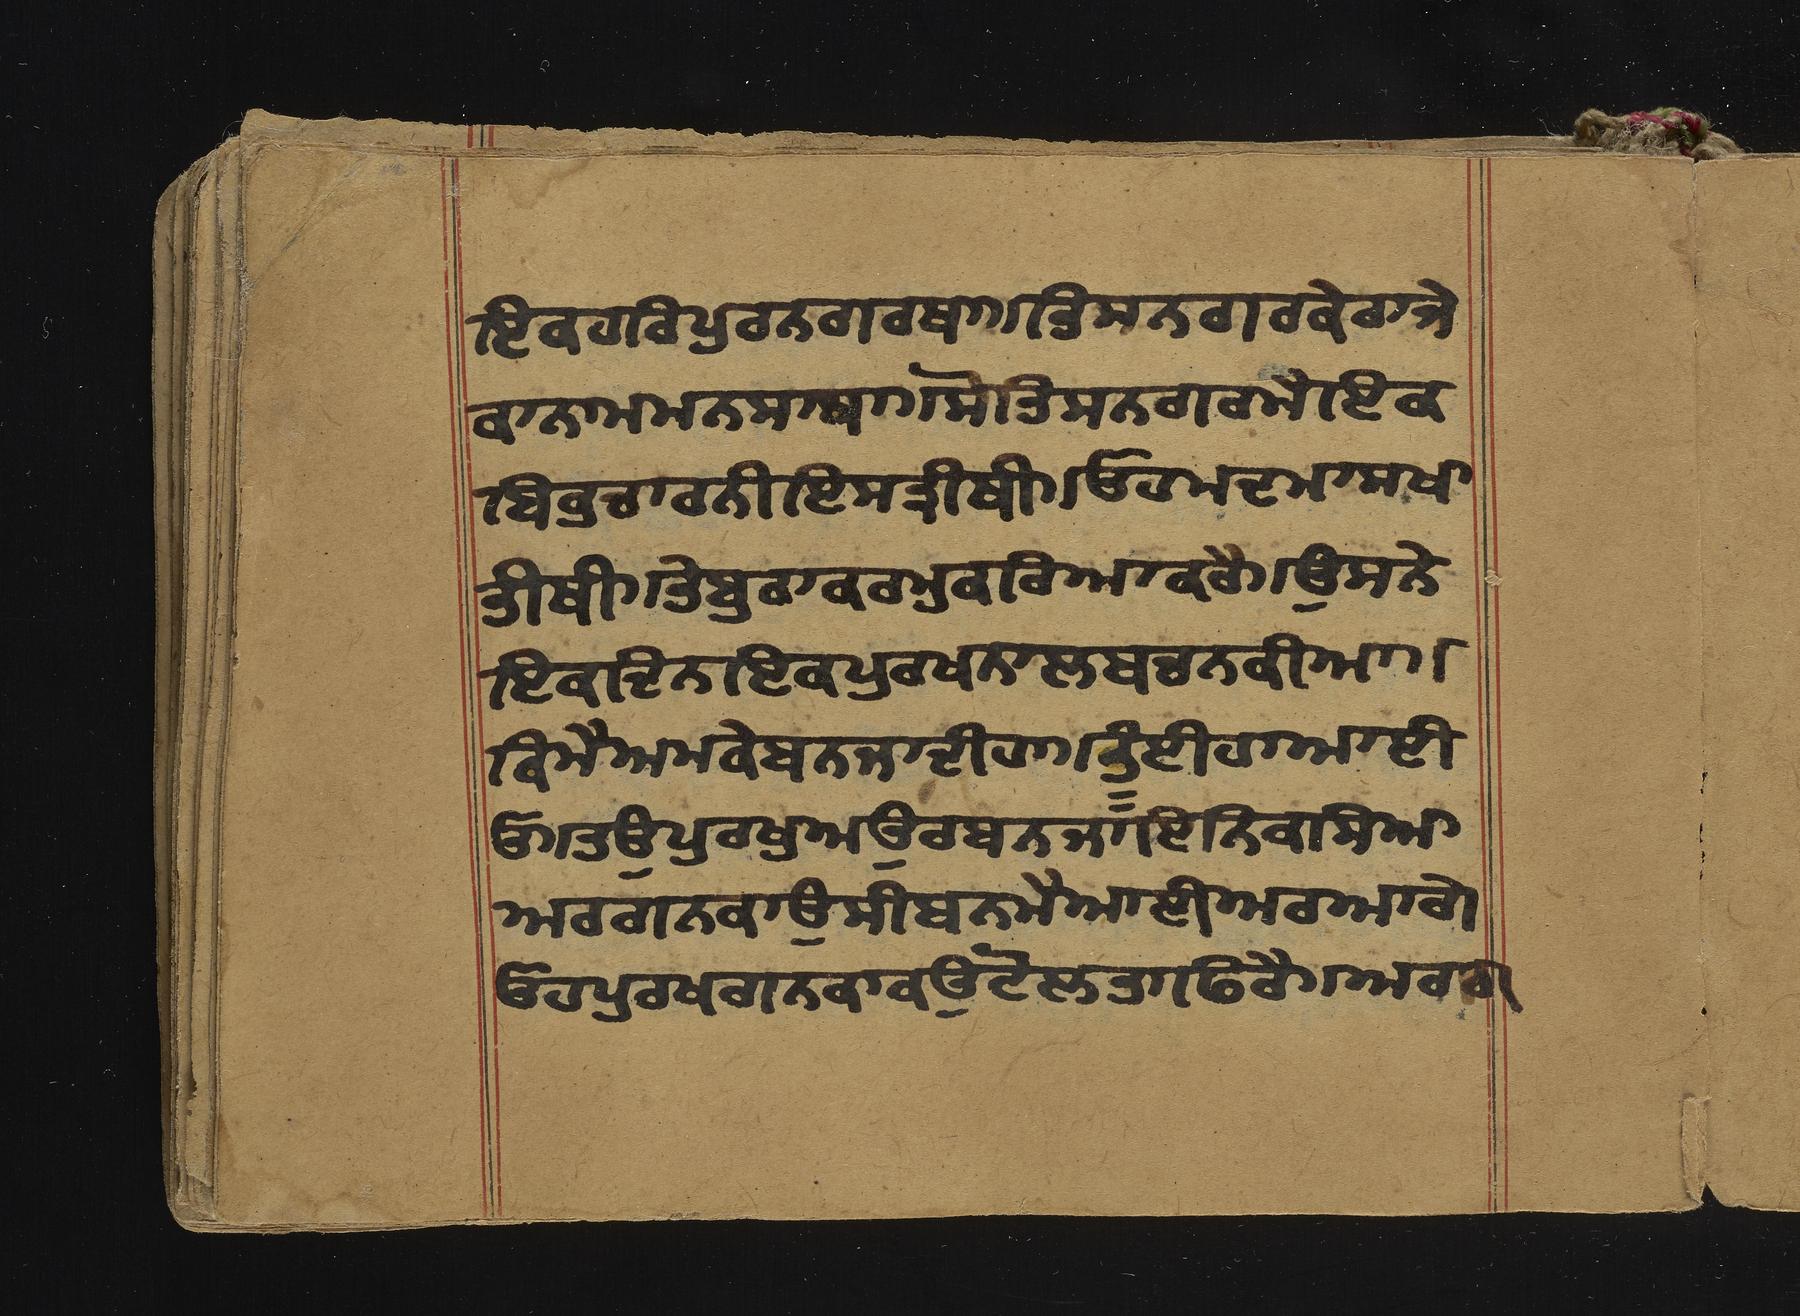 ਇਕਹਰਿਪੁਰਨਗਰਥਾ।ਤਿਸਨਗਰਕੇਰਾਜੇ
ਕਾਨਾਮਮਨਸਾਥਾ।ਸੋਤਿਸਨਗਰਮੈਇਕ
ਬਿਕੁਚਾਰਨੀਇਸਤ੍ਰੀਥੀ।ਓਹਮਦਮਾਸਖਾ
ਤੀਥੀ।ਤੇਬੁਰਾਕਰਮੁਕਰਿਆਕਰੈ।ਉਸਨੇ
ਇਕਦਿਨਇਕਪੁਰਖਨਾਲਬਚਨਕੀਆ।
ਕਿਮੈਅਮਕੇਬਨਜਾਦੀਹਾ।ਤੂੰਈਹਾਆਈ
ਓ।ਤਉਪੁਰਖੁਅਉਰਬਨਜਾਇਨਿਕਾਸਿਆ
ਅਰਗਨਕਾਉਸੀਬਨਮੈਆਈਅਰਆਗੇ
ਓਹਪੁਰਖਗਨਕਾਕਉਟੋਲਤਾਫਿਰੈ।ਅਰਗ